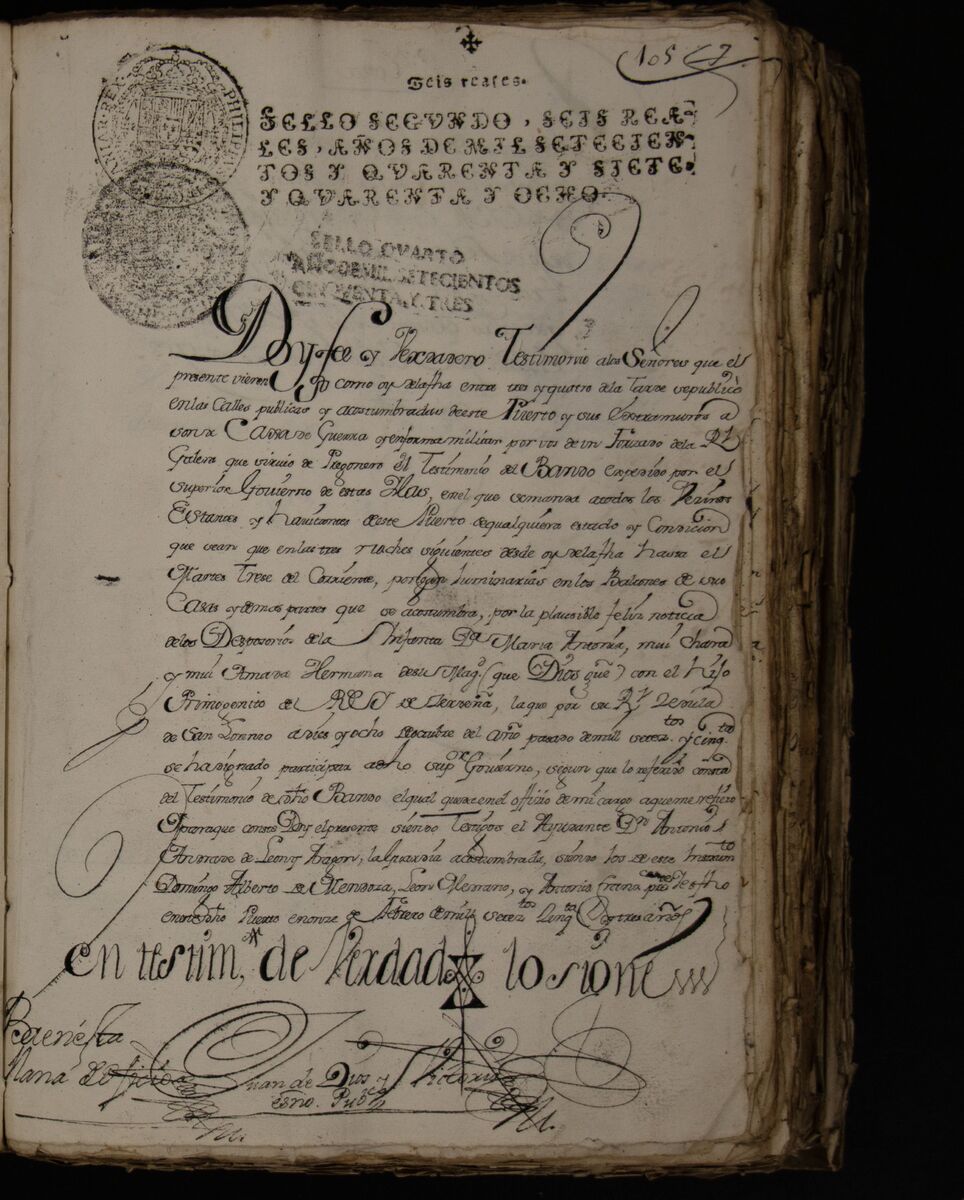 105
Seis reales.
SELLO SEGVNDO, SEIS REA-
LES, AÑOS DE MIL SETECIEN-
TOS Y QVARENTA Y SIETE
Y QVARENTA Y OCHO.
SELLO QVARTO
AÑO DE MIL SETECIENTOS
CINQVENTA Y TRES
Doy fee y Verdadero Testimonio alos Señores que el
presente vieren como oy dela fha entra tres y quatro dela tarde se publicò
en las Calles publicas y acostumbradas de este Puerto y sus Extramuros a
son de Caxa de Guerra y en forma militar por vos de un Forzado de la Rl
Galera que sirvio de Pregonero el Testimonio del Bando expedido por el
superior Govierno de estas Yslas, en el que se manda a todos los Vezinos
Estantes y havitantes de este Puerto de qualquiera estado y Condicion
que sean que en las tres noches siguientes desde oy dela fha hasta el
Martes Trese del Corriente, pongan luminarias en los Balcones de sus
Casas y demas partes que se acostumbra, por la plausible feliz noticia
de los Desposorios de la Infanta Da Maria Antonia, mui chara
y mui Amada Hermana de su Magd. (que Dios gue) con el hijo
Primogenito del REY de Cerdeña, la que por su Rl Cedula
de San Lorenzo a dies y ocho de Octubre del año pasado de mil seteztos y cinqta
se ha dignado participar a dho supor Govierno, segun que lo referido consta
del Testimonio de dho Bando el qual queda en el officio de mi cargo a que me refiero
Y para que conste Doy el presente siendo Testigos el Ayudante Dn Antonio
Andrade de Leon y Aragon, la Guardia acostumbrada, siendo los de este
Domingo Alberto de Mendoza, Leon Serrano, y Antonio Franco
en este dho Puerto en onze de Febrero de mil seteztos cinqta y tres años
en testim. de Verdad lo signe
Juan de Dios y
esno. Pubco